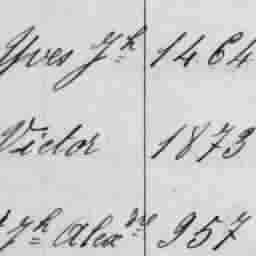 Yves Jh 1464
Victor 1873
Jh Alexdre 957